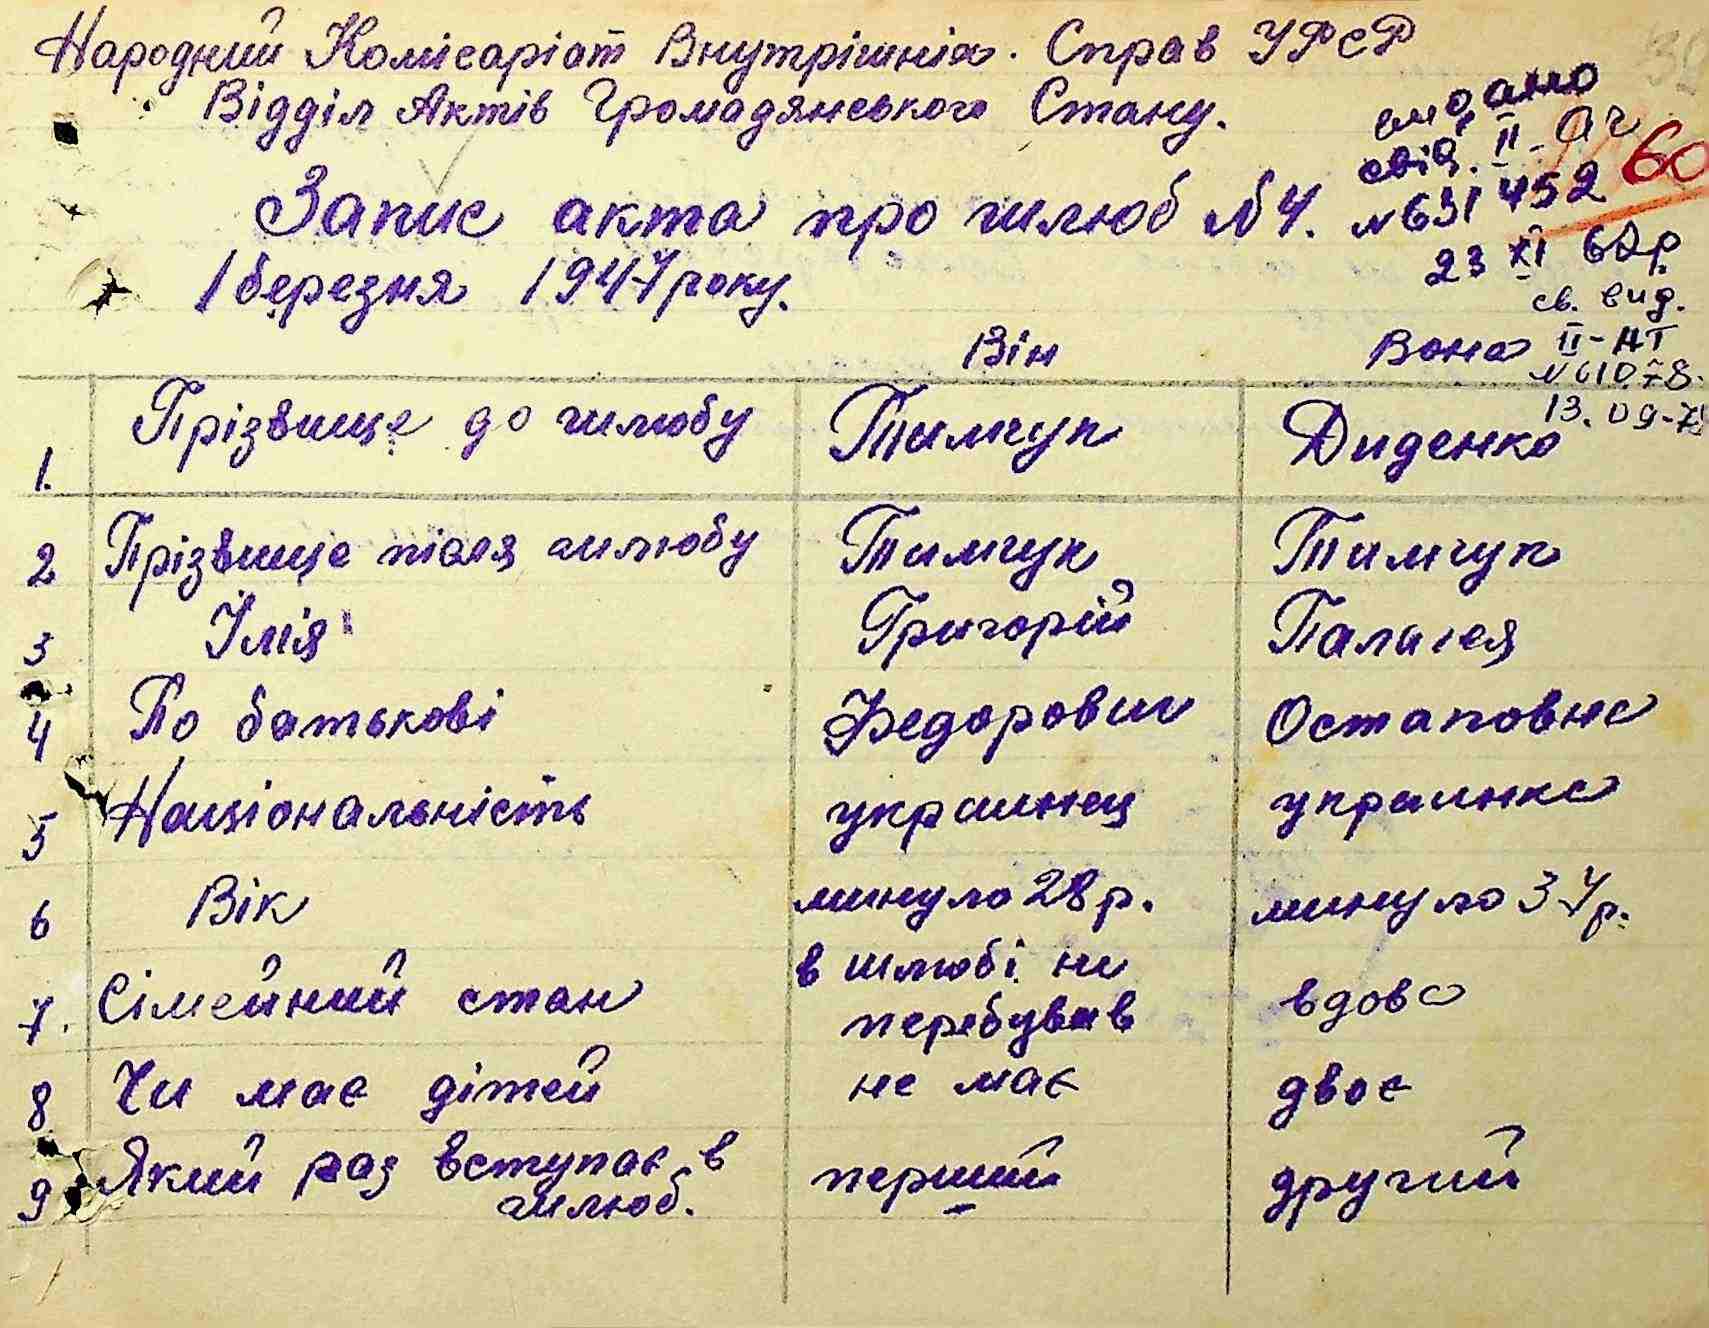 Народний Комісаріат Внутрішніх. Справ УРСР
Відділ Актів Громадянського Стану.
видано
свід. II-АЧ
60
Запис акта про шлюб №4.
№631452
1 березня 1947 року.
23 XI 62р.
св. вид.
Він Вона
II-НТ
13.09-7
1. Прізвище до шлюбу Тимчук Диденко
2 Прізвище після шлюбу Тимчук Тимчук
3 Імія Григорій Палагея
4 По батькові Федорович Остаповна
5 Національність украинец украинка
6 Вік минуло 28 р. минуло 37 р.
7. Сімейний стан в шлюбі не перебував вдова
8 Чи має дітей не має двоє
9 Який раз вступає в шлюб. перший другий